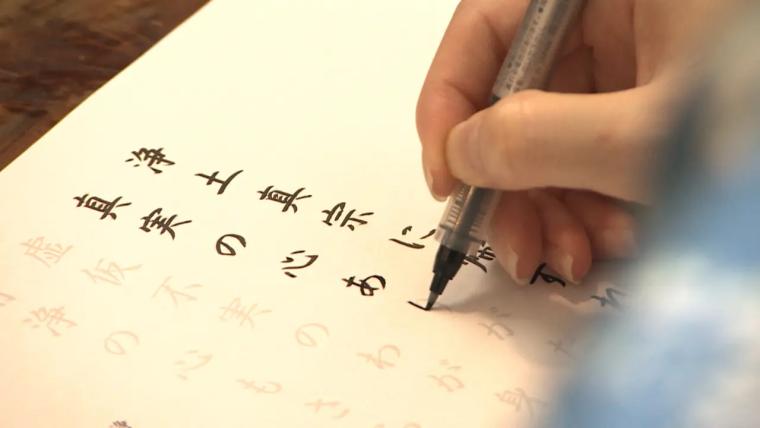 浄土真宗に帰すれ
真実の心あがた
虚仮不実のわが身
浄の心もさ